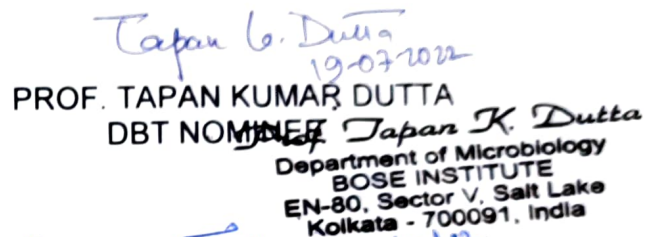 Tapan K. Dutta
19-07-2022
PROF. TAPAN KUMAR DUTTA
DBT NOMINEE
Prof Tapan K. Dutta
Department of Microbiology
BOSE INSTITUTE
EN-80, Sector V, Salt Lake
Kolkata - 700091, India